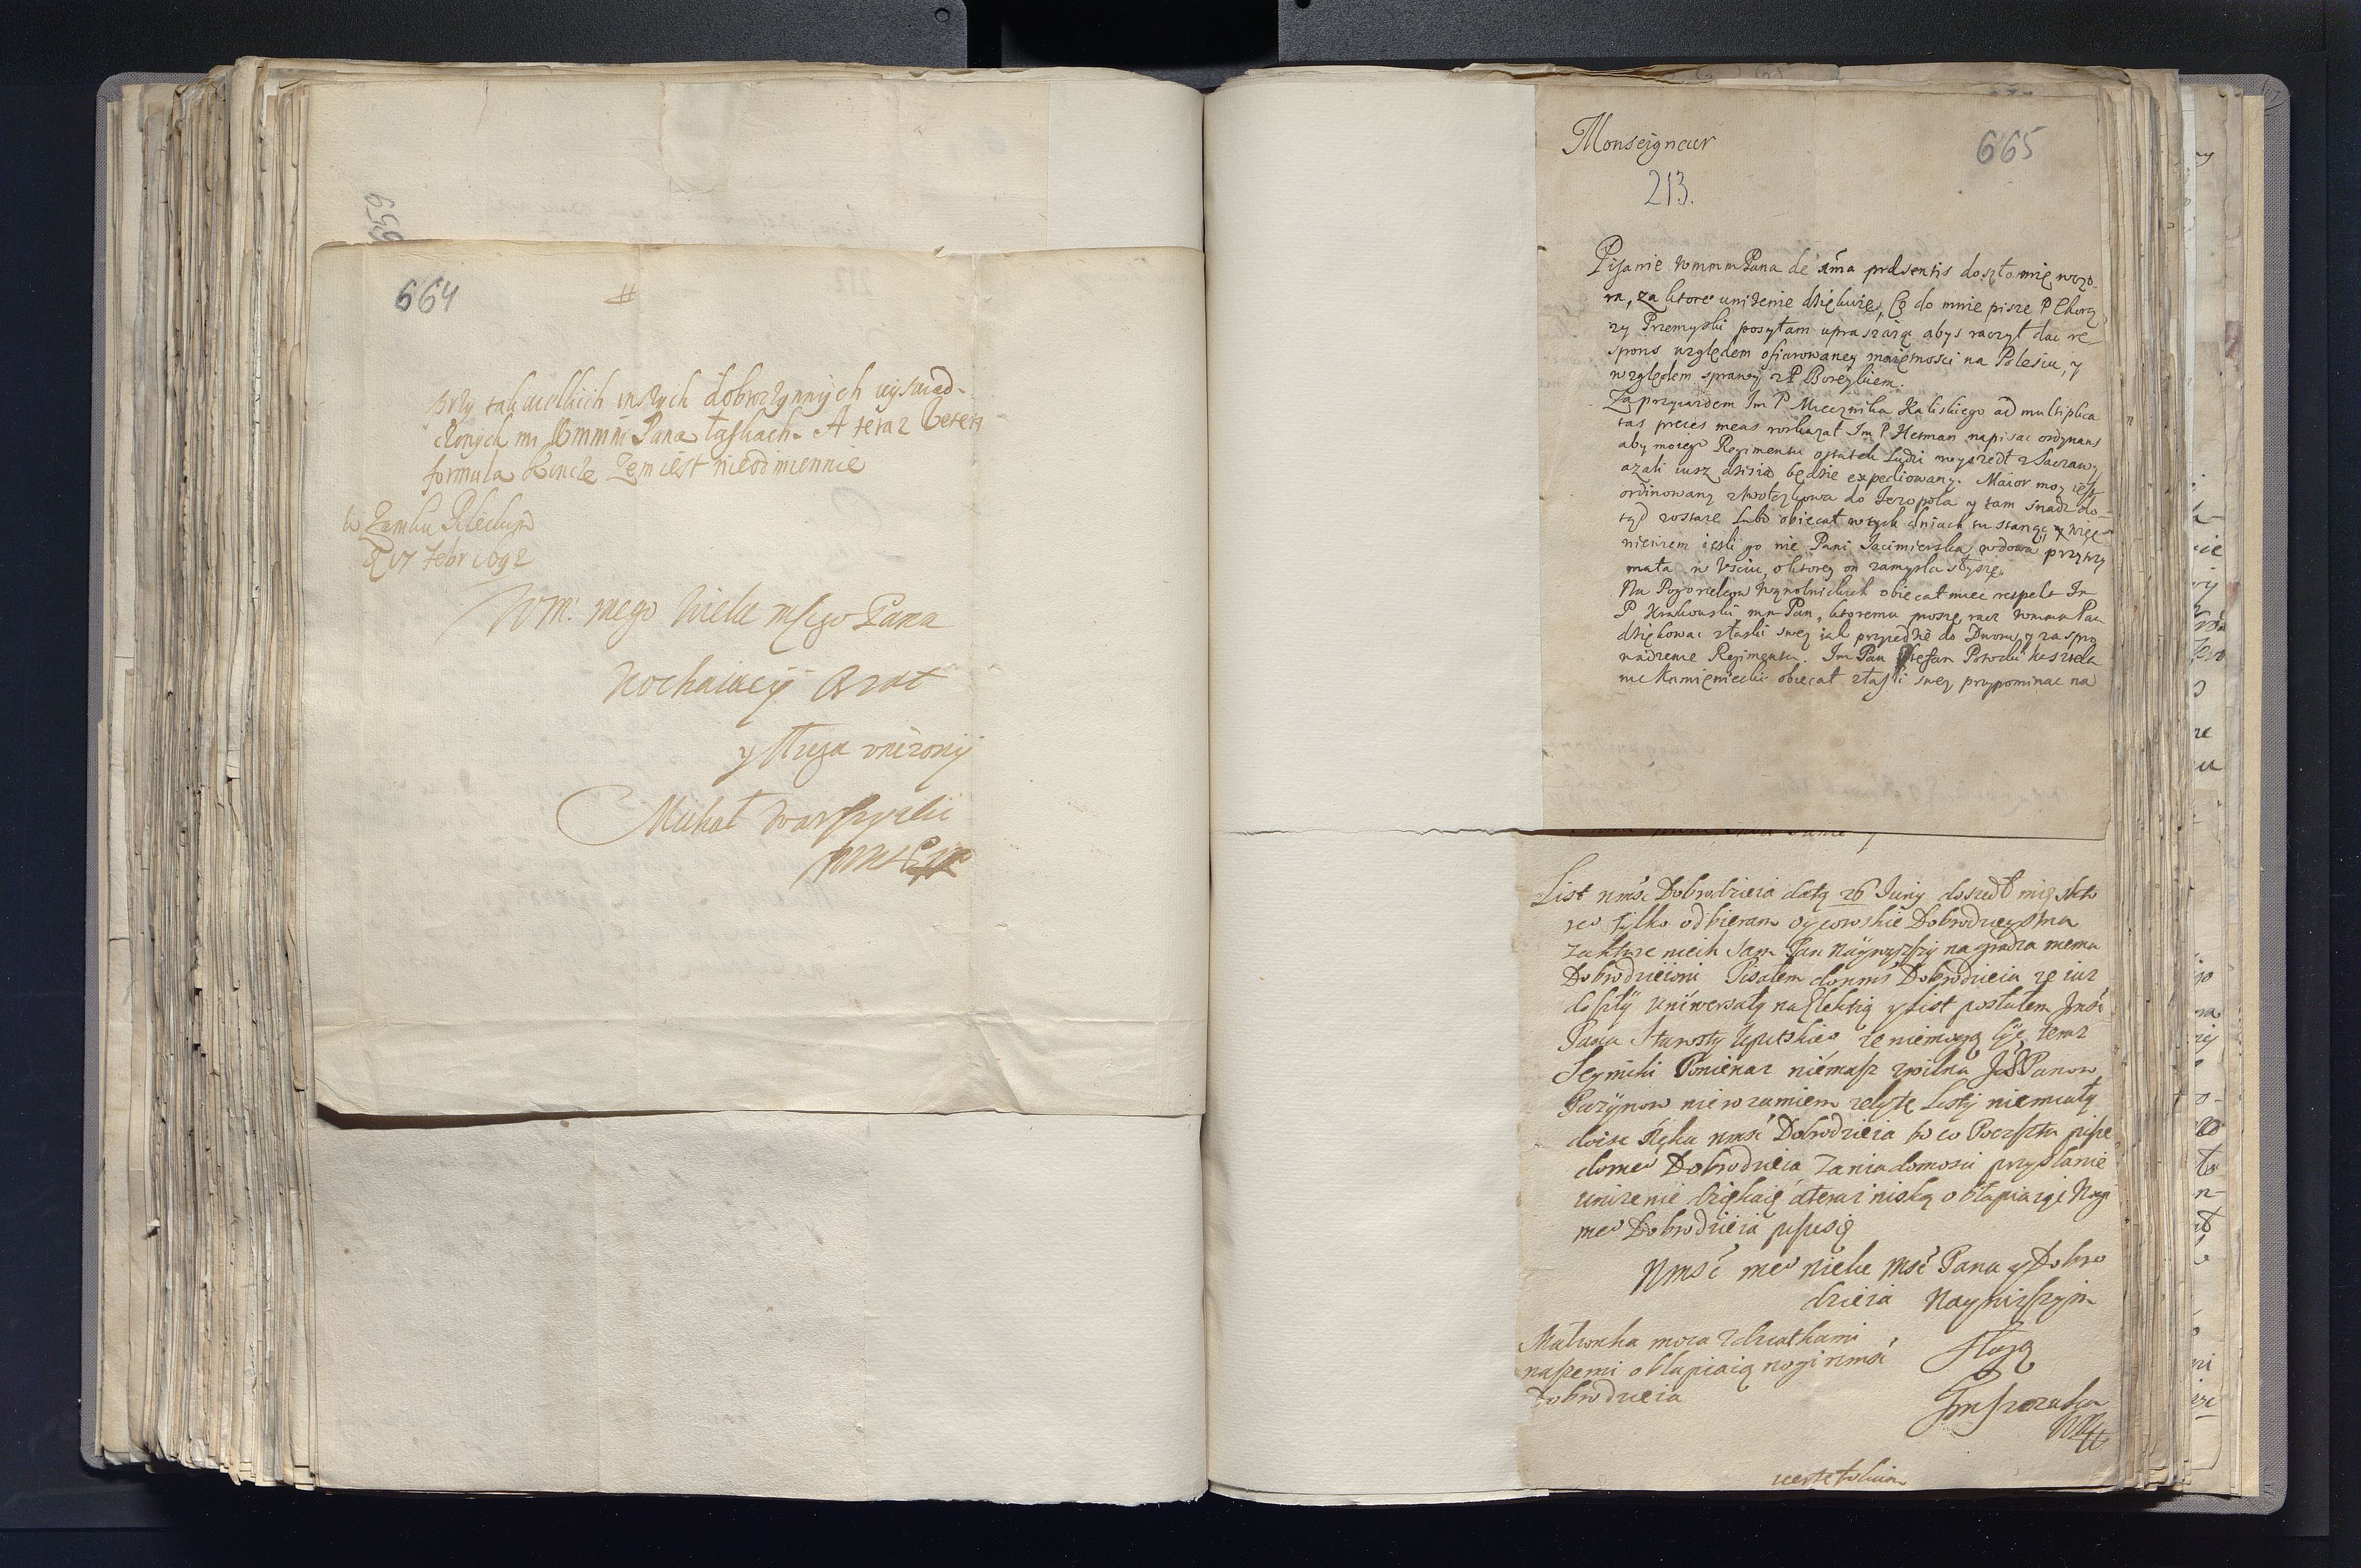 659
664
#
przy tak wielkich inszych dobroczynnych wyswiad-
czonych mi Wmmm Pana łaskach. A teraz
formula koncze zem iest nieodmiennie
w Zamku
D 17 Febr 1692
Wm: mego Wielce mſciego Pana
Kochaiący Brat
y sługa unizony
Michał Warszycki
Monseigneur
665
213.
Pisanie Wmmm Pana de 1ma praesentis doszło mię wczo-
ra, za ktore unizenie dziękuię, Co do mnie pisze P Chorą
zy Przemyski posyłam upraszaiąc abys raczył dac re-
spons względem ofiarowaney maiętnosci na Polesiu, y
względem sprawy z P Boreykiem.
Za przyiazdem Im P Miecznika Kaliskiego ad multiplica
tas preces meas roskazał Im P Hetman napisac ordynans
aby moiego Regimentu ostatek Ludzi wyszedł z
azali iusz dzisia będzie expediowany. Maior moy iest
ordinowany do Jezopola y tam snadz do-
tąd zostaie Lubo obiecał w tych dniach tu stanąc, y więc
nie wiem iesli go nie Pani Jacimierska wdowa przytrzy
mała w Usciu, o ktorey on zamysla słyszę.
Na Pogorzelcow obiecał miec respekt Im
P Krakowski mm Pan, ktoremu proszę racz Wmmm Pan
dziękowac z łaski swey iak przyiedzie do Dworu, y za spro
wadzenie Regimentu. Im Pan Stefan Potocki kasztela
nic Kamieniecki obiecał z łaski swey przypominac na
List Wmsć Dobrodzieia datą 26 Juny doszedł mię z kto
reo tylko odbieram oycowskie Dobrodzieystwa
za ktore niech sam Pan Naywyszszy nagradza memu
Dobrodzieiowi Pisałem do Wmsc Dobrodzieia ze iuz
doszły Uniwersały na Elektią y list posłałem Jmsci
Pana Starosty Upitskieo ze niemogą byc teraz
Seymiki Poniewaz niemasz w Wilna Panow
nierozumiem zeby te Listy niemiały
doisc Ręku Wmsć Dobrodzieia bo co Poczstu pisze
domeo Dobrodzieia za wiadomosci przysłanie
unizenie dziękuię a teraz nisko obłapiaiąc Nogi
meo Dobrodzieia piszę się
Wmsć meo wielce Msć Pana y Dobro
dzieia Nayniszszym
sługą
Małzonka moia z dziatkami
naszemi obłapiaią nogi Wmsć
Dobrodzieia
verte folium